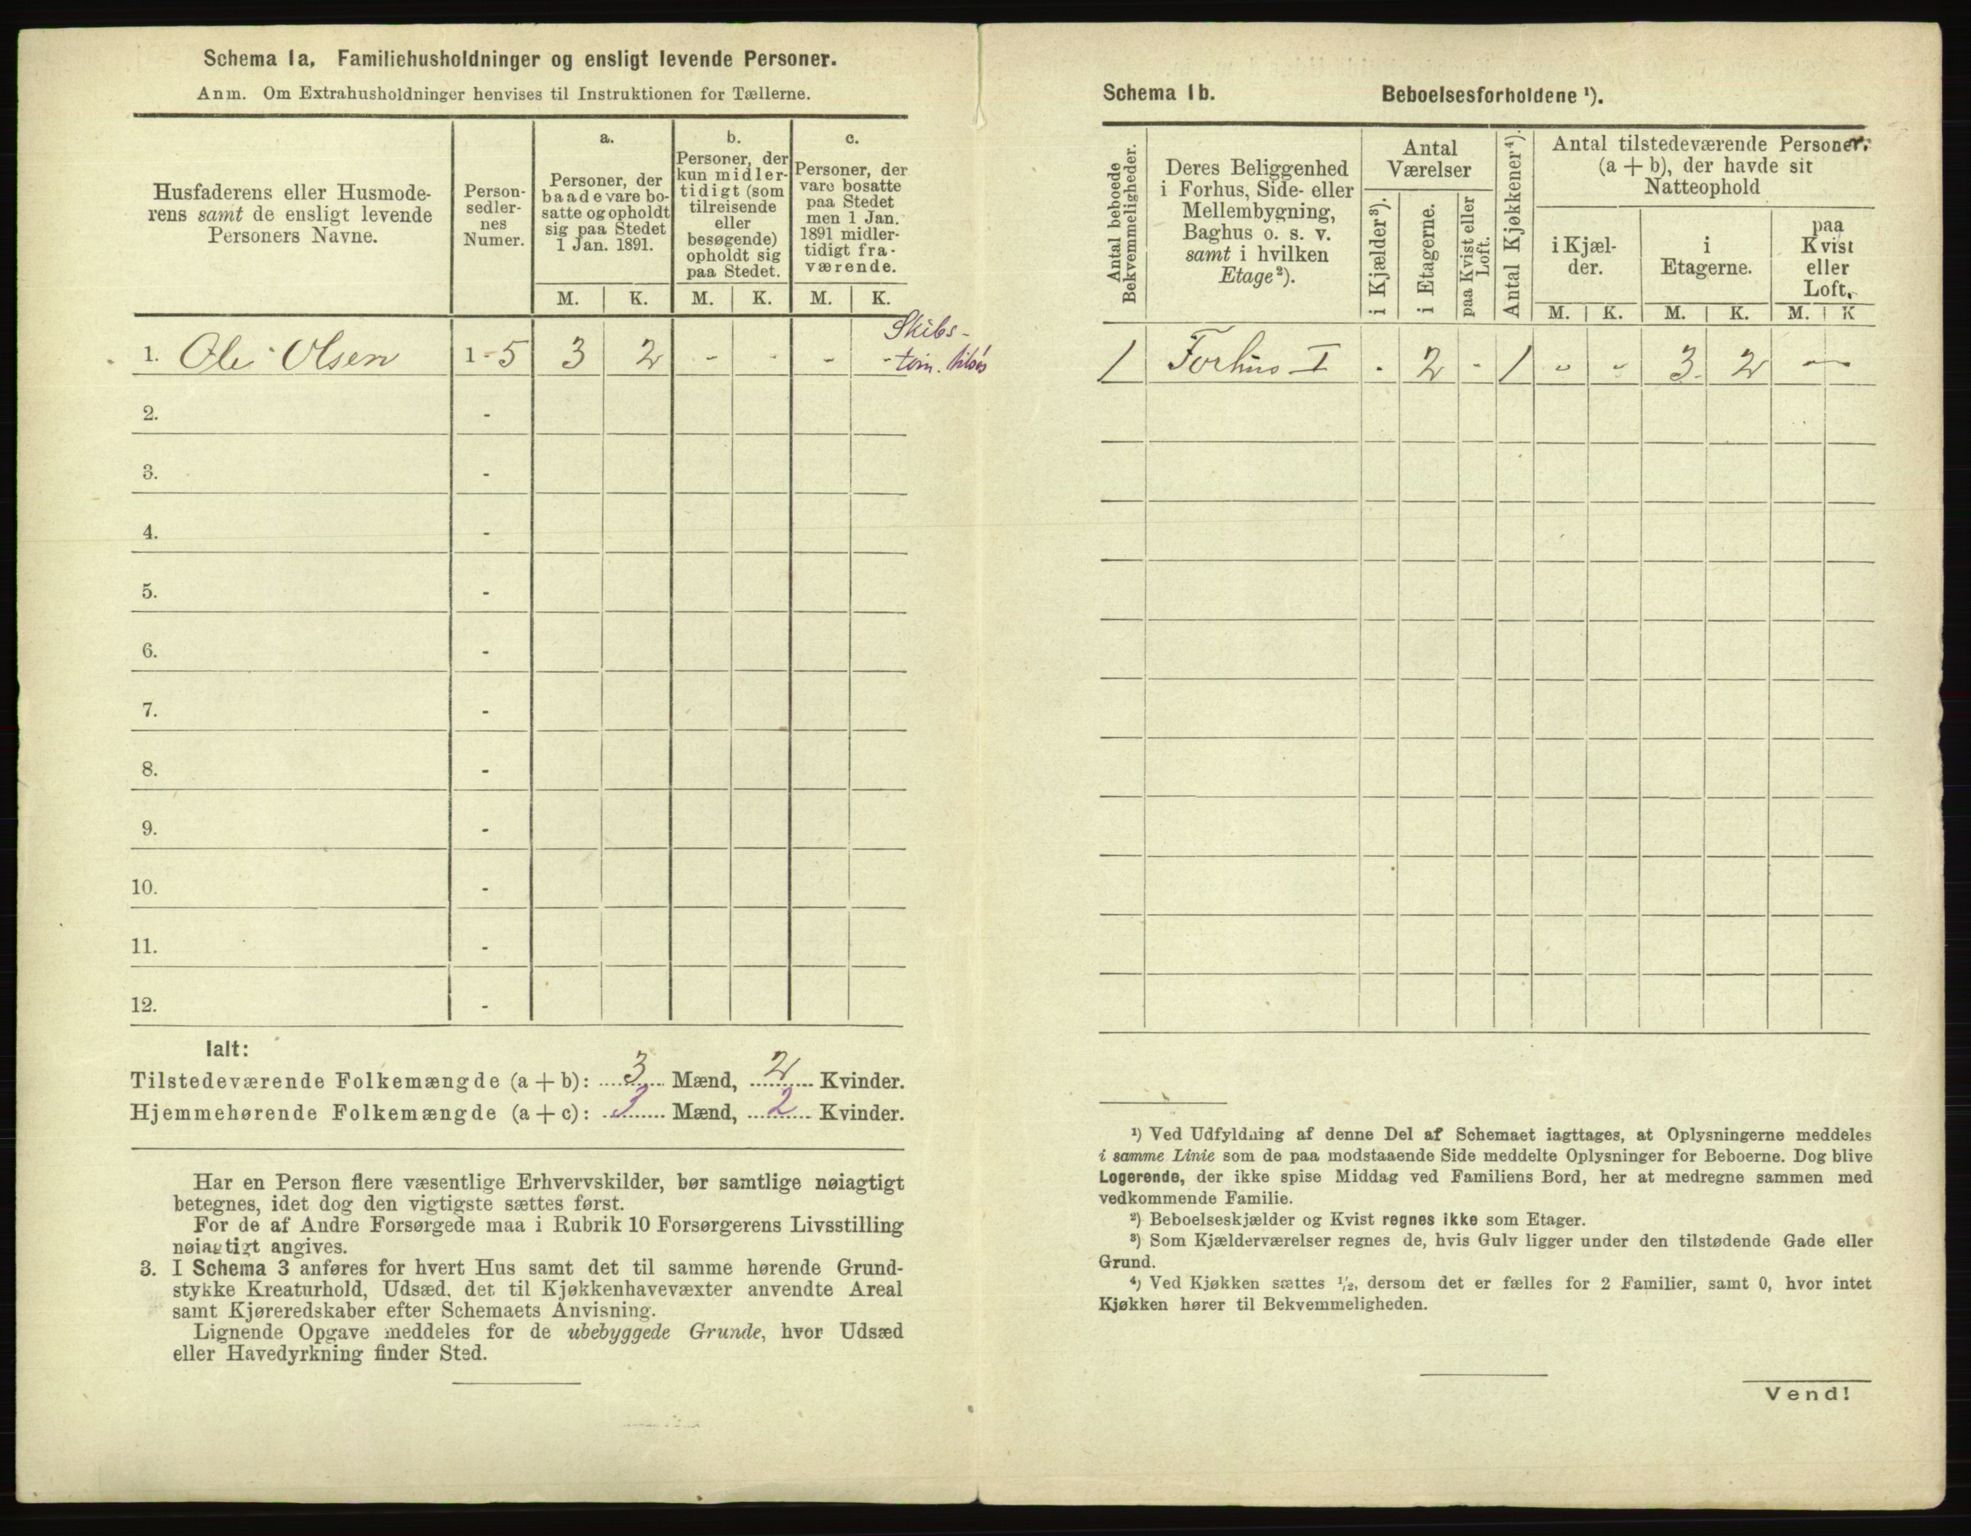 Schema 1a. Familiehusholdninger og ensligt levende Personer.
Anm. Om Extrahusholdninger henvises til Instruktionen for Tællerne.
Husfaderens eller Husmode-
rens samt de ensligt levende
Personers Navne.
Person-
sedler-
nes
Numer.
a.
Personer, der
baade vare bo-
satte og opholdt
sig paa Stedet
1 Jan. 1891.
b.
Personer, der
kun midler-
tidigt (som
tilreisende
eller
besøgende)
opholdt sig
paa Stedet.
c.
Personer, der
vare bosatte
paa Stedet
men 1 Jan.
1891 midler-
tidigt fra-
værende.
M. K. M. K. M. K.
Skibs-
1. Ole Olsen 1 - 5 3 2 - - - - töm.
2. -
3. -
4. -
5. -
6. -
7. -
8. -
9. -
10. -
11. -
12. -
Ialt:
Tilstedeværende Folkemængde (a + b): 3 Mænd, 2 Kvinder.
Hjemmehørende Folkemængde (a + c): 3 Mænd, 2 Kvinder.
Har en Person flere væsentlige Erhvervskilder, bør samtlige nøiagtigt
betegnes, idet dog den vigtigste sættes først.
For de af Andre Forsørgede maa i Rubrik 10 Forsørgerens Livsstilling
nøiagtigt angives.
3. I Schema 3 anføres for hvert Hus samt det til samme hørende Grund-
stykke Kreaturhold, Udsæd, det til Kjøkkenhavevæxter anvendte Areal
samt Kjøreredskaber efter Schemaets Anvisning.
Lignende Opgave meddeles for de ubebyggede Grunde, hvor Udsæd
eller Havedyrkning finder Sted.
Schema 1b. Beboelsesforholdene ¹).
Antal beboede
Bekvemmeligheder.
Deres Beliggenhed
i Forhus, Side- eller
Mellembygning,
Baghus o. s. v.
samt i hvilken
Etage²).
Antal
Værelser
i Kjælder³).
i Etagerne.
paa Kvist eller
Loft.
Antal Kjøkkener⁴).
Antal tilstedeværende Personer,
(a + b), der havde sit
Natteophold
i Kjæl-
der.
i
Etagerne.
paa
Kvist
eller
Loft.
M. K. M. K. M. K
1 Forhus I . 2 - 1 - - 3 2 —
¹) Ved Udfyldning af denne Del af Schemaet iagttages, at Oplysningerne meddeles
i samme Linie som de paa modstaaende Side meddelte Oplysninger for Beboerne. Dog blive
Logerende, der ikke spise Middag ved Familiens Bord, her at medregne sammen med
vedkommende Familie.
²) Beboelseskjælder og Kvist regnes ikke som Etager.
³) Som Kjælderværelser regnes de, hvis Gulv ligger under den tilstødende Gade eller
Grund.
⁴) Ved Kjøkken sættes ½, dersom det er fælles for 2 Familier, samt 0, hvor intet
Kjøkken hører til Bekvemmeligheden.
Vend!